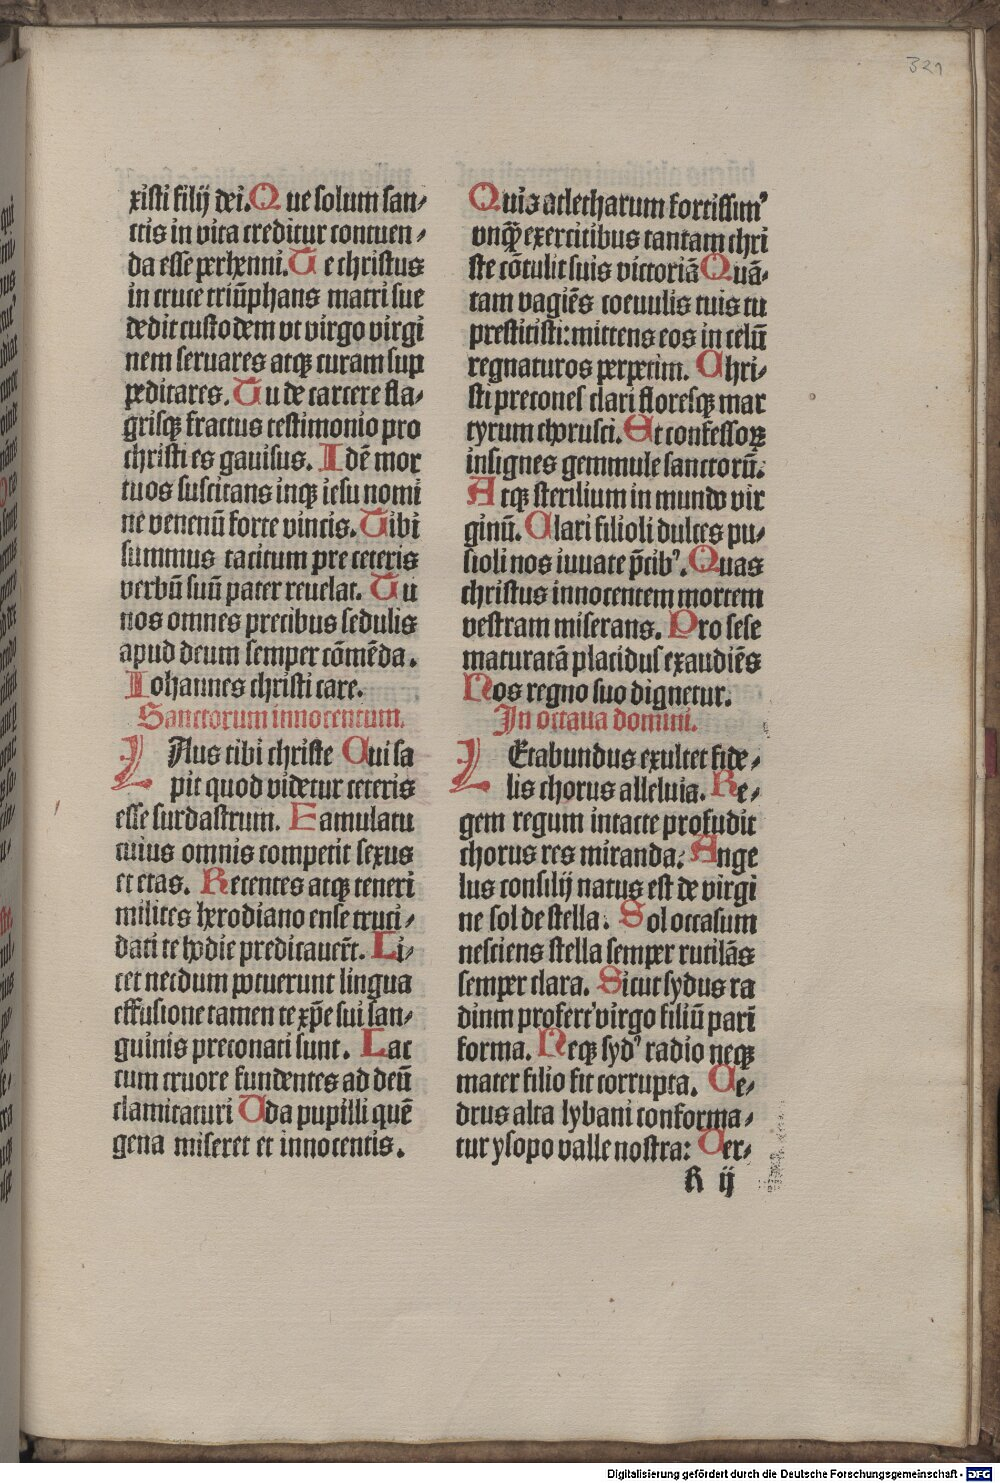 321
xisti filij dei. Que solum san-
ctis in vita creditur contuen-
da esse perhenni. Te christus
in cruce triūphans matri sue
dedit custodem vt virgo virgi
nem seruares atqꝫ curam sup
peditares. Tu de carcere fla-
grisqꝫ fractus testimonio pro
christi es gauisus. Idē mor
tuos suscitans inqꝫ iesu nomi
ne venenū forte vincis. Tibi
summus tacitum pre ceteris
verbū suū pater reuelat. Tu
nos omnes precibus sedulis
apud deum semper cōmēda.
Iohannes christi care.
Sanctorum innocentum.
LAus tibi christe Cui sa
pit quod videtur ceteris
esse surdastrum. Eamulatu
cuius omnis competit sexus
et etas. Recentes atqꝫ teneri
milites herodiano ense truci-
dati te hodie predicauer̄t. Li-
cet necdum potuerunt lingua
effusione tamen te xp̄e sui san-
guinis preconati sunt. Lac
cum cruore fundentes ad deū
clamitaturi Uda pupilli quē
gena miseret et innocentis.
Quis atletharum fortissimꝰ
vnqꝫ̄ exercitibus tantam chri
ste cōtulit suis victoriā Quā-
tam vagiēs coeuulis tuis tu
prestitisti: mittens eos in celū
regnaturos perpetim. Chri-
sti precones clari floresqꝫ mar
tyrum chorusci. Et confessoꝝ
insignes gemmule sanctorū.
Atqꝫ sterilium in mundo vir
ginū. Clari filioli dulces pu-
sioli nos iuuate p̄cibꝰ. Quas
christus innocentem mortem
vestram miserans. Pro sese
maturatā placidus exaudiēs
Nos regno suo dignetur.
In octaua domini.
LEtabundus exultet fide-
lis chorus alleluia. Re-
gem regum intacte profudit
thorus res miranda: Ange
lus consilij natus est de virgi
ne sol de stella. Sol occasum
nesciens stella semper rutilās
semper clara. Sicut sydus ra
dium profert virgo filiū pari
forma. Neqꝫ sydꝰ radio neqꝫ
mater filio fit corrupta. Ce-
drus alta lybani conforma-
tur ysopo valle nostra: Ver-
R ij
Digitalisierung gefördert durch die Deutsche Forschungsgemeinschaft - DFG